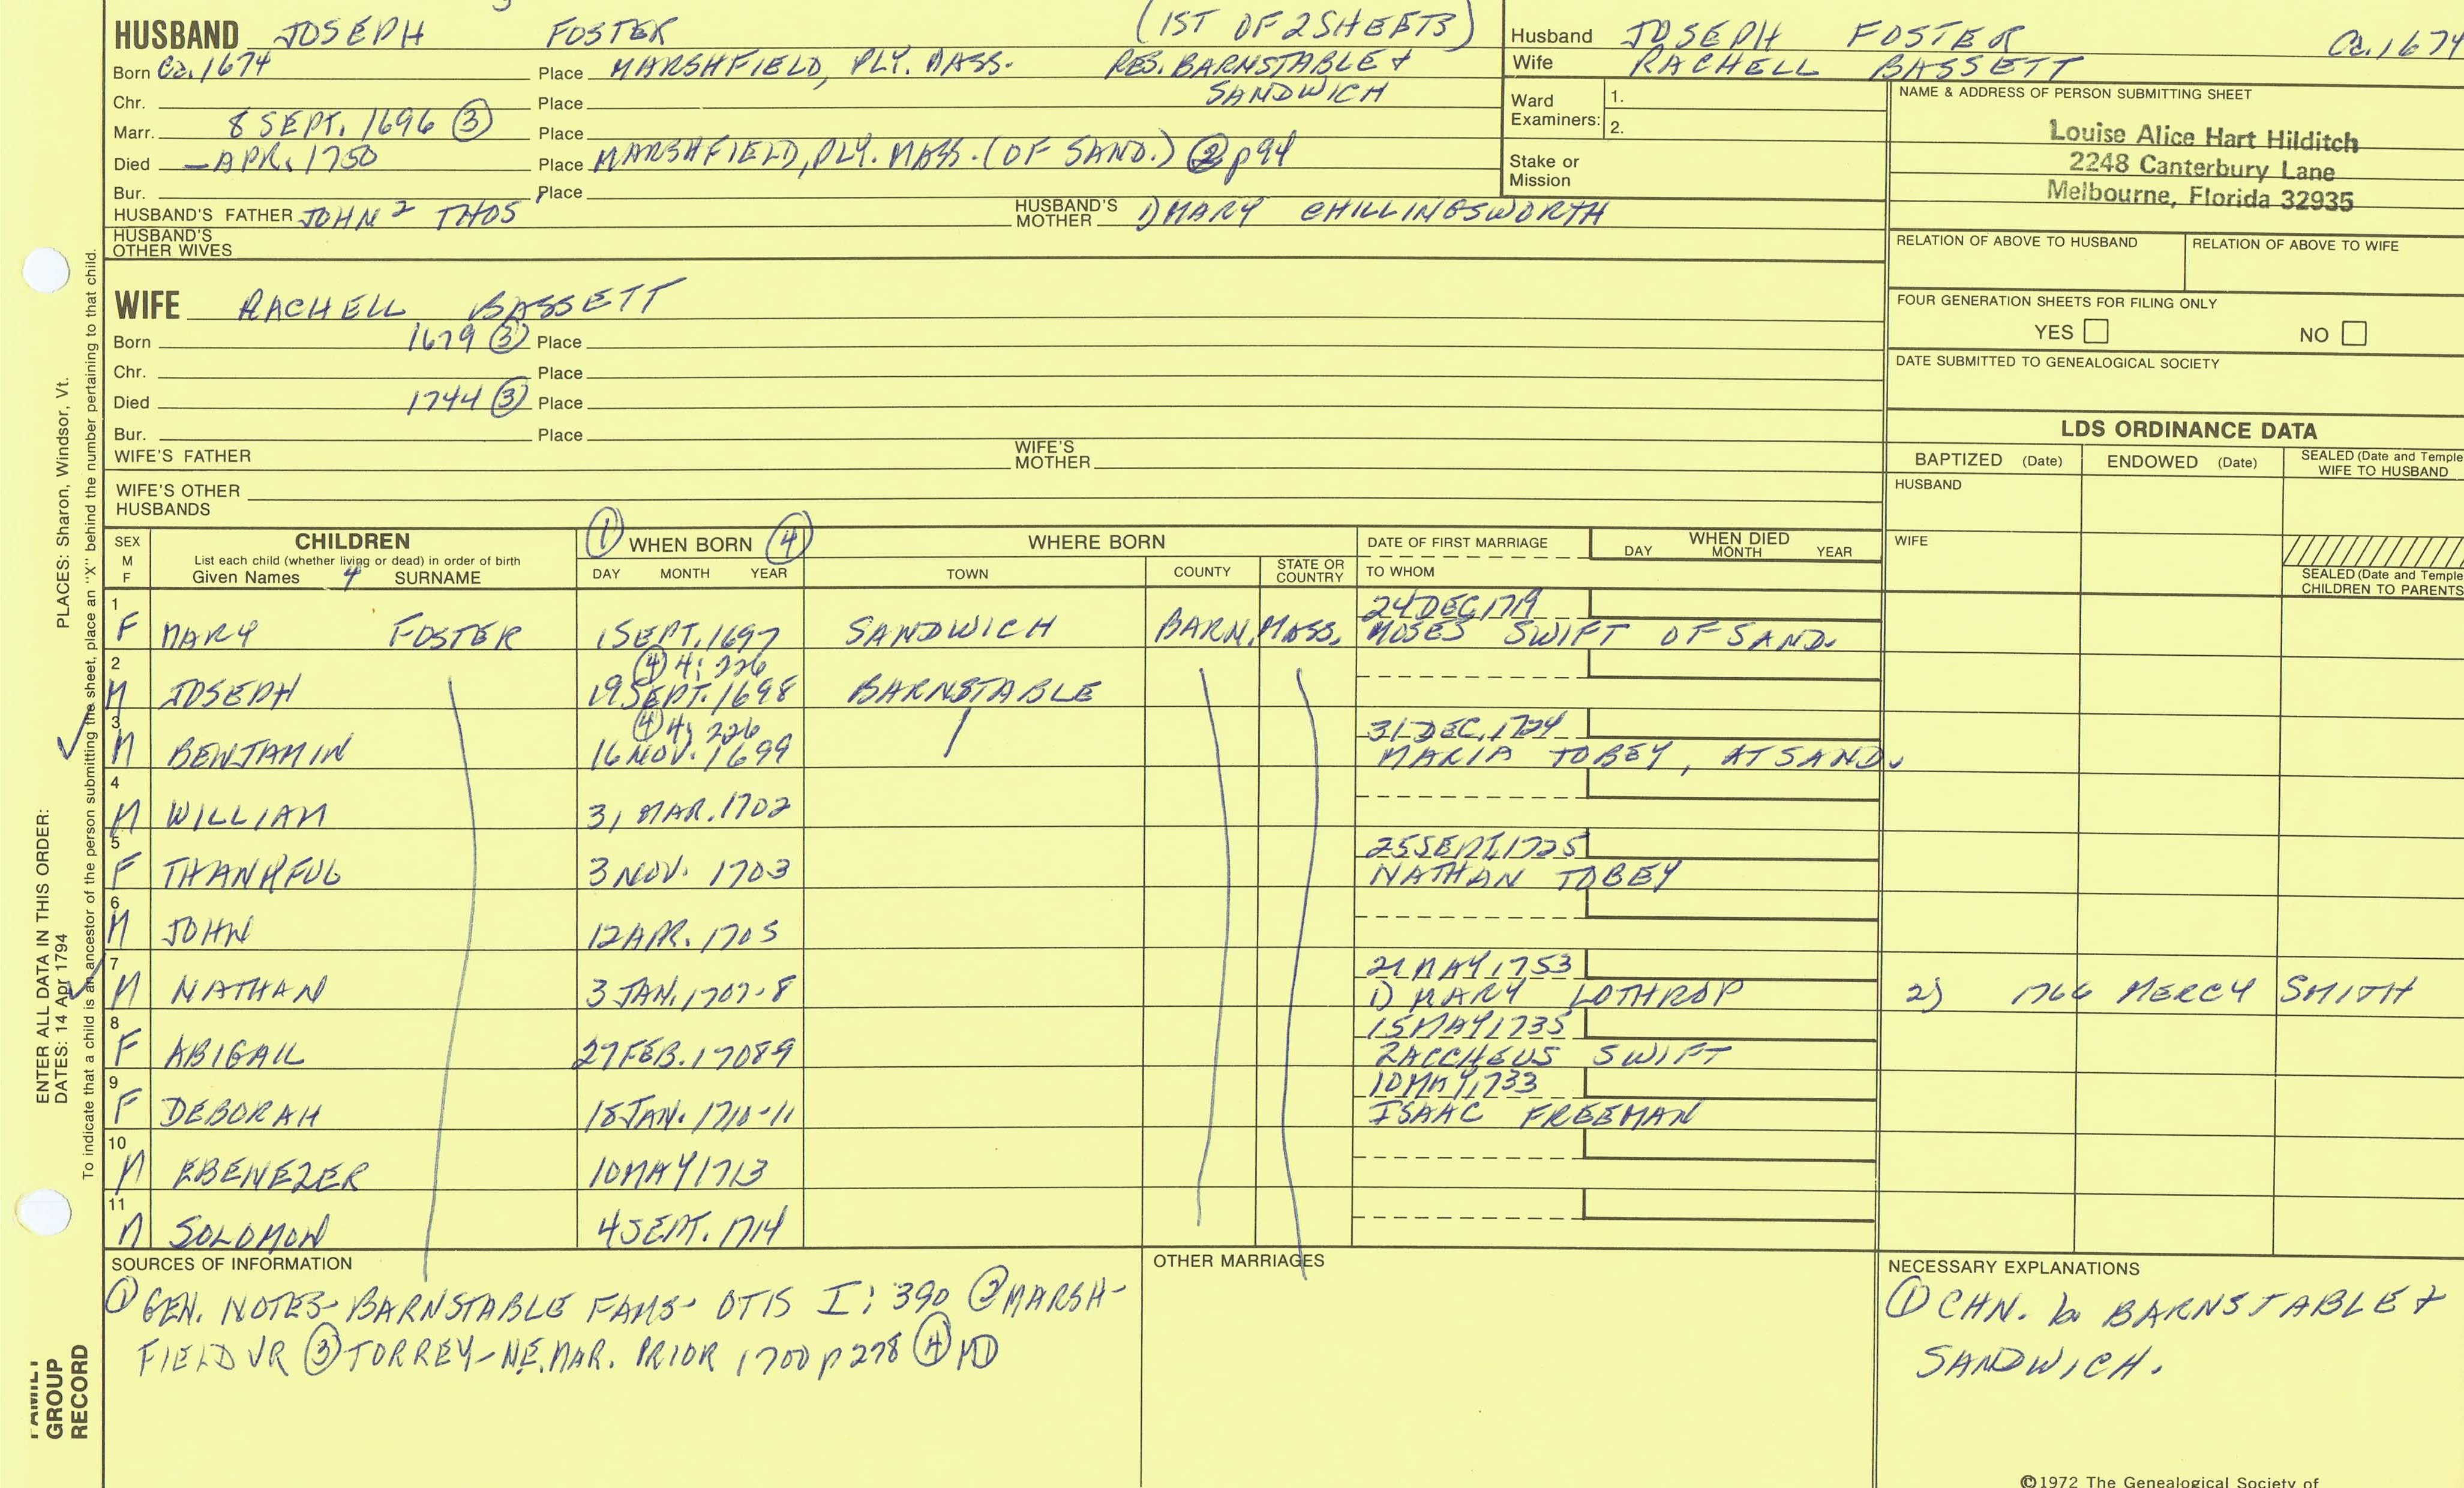 HUSBAND JOSEPH FOSTER (1ST OF 2 SHEETS)
Born Ca. 1674 Place MARSHFIELD, PLY. MASS. RES. BARNSTABLE +
SANDWICH
Chr. Place
Marr. 8 SEPT. 1696 ③ Place
Died — APR. 1750 Place MARSHFIELD, PLY. MASS. (OF SAND.) ② p94
Bur. Place
HUSBAND'S FATHER JOHN 2 THOS HUSBAND'S MOTHER 1) MARY CHILLINGSWORTH
HUSBAND'S OTHER WIVES
Husband JOSEPH FOSTER Ca. 1674
Wife RACHELL BASSETT
Ward Examiners: 1.
2.
Stake or Mission
NAME & ADDRESS OF PERSON SUBMITTING SHEET
Louise Alice Hart Hilditch
2248 Canterbury Lane
Melbourne, Florida 32935
RELATION OF ABOVE TO HUSBAND RELATION OF ABOVE TO WIFE
FOUR GENERATION SHEETS FOR FILING ONLY
YES NO
DATE SUBMITTED TO GENEALOGICAL SOCIETY
WIFE RACHELL BASSETT
Born 1679 ③ Place
Chr. Place
Died 1744 ③ Place
Bur. Place
WIFE'S FATHER WIFE'S MOTHER
WIFE'S OTHER HUSBANDS
LDS ORDINANCE DATA
BAPTIZED (Date) ENDOWED (Date) SEALED (Date and Temple
WIFE TO HUSBAND
HUSBAND
WIFE
SEALED (Date and Temple
CHILDREN TO PARENTS
SEX M F
CHILDREN
List each child (whether living or dead) in order of birth
Given Names 4 SURNAME
① WHEN BORN ④
DAY MONTH YEAR
WHERE BORN
TOWN COUNTY STATE OR COUNTRY
DATE OF FIRST MARRIAGE
TO WHOM
WHEN DIED
DAY MONTH YEAR
1 24 DEC, 1719
F MARY FOSTER 1 SEPT. 1697 SANDWICH BARN. MASS. MOSES SWIFT OF SAND.
2 ④ 4: 226
M JOSEPH 19 SEPT. 1698 BARNSTABLE
3 ④ 4: 226 31 DEC, 1724
M BENJAMIN 16 NOV. 1699 MARIA TOBEY, AT SAND.
4
M WILLIAM 31 MAR. 1702
5 25 SEPT, 1725
F THANKFUL 3 NOV. 1703 NATHAN TOBEY
6
M JOHN 12 APR. 1705
7 21 MAY 1753
M NATHAN 3 JAN. 1707-8 1) MARY LOTHROP 2) 1766 MERCY SMITH
8 15 MAY 1735
F ABIGAIL 27 FEB. 17089 ZACCHEUS SWIFT
9 10 MAY, 1733
F DEBORAH 18 JAN. 1710-11 ISAAC FREEMAN
10
M EBENEZER 10 MAY 1713
11
M SOLOMON 4 SEPT. 1714
SOURCES OF INFORMATION
① GEN. NOTES- BARNSTABLE FAMS- OTIS I: 390 ② MARSH-
FIELD VR ③ TORREY-NE. MAR. PRIOR 1700 p 278 ④ MD
OTHER MARRIAGES
NECESSARY EXPLANATIONS
① CHN. b BARNSTABLE +
SANDWICH.
©1972 The Genealogical Society of
ENTER ALL DATA IN THIS ORDER:
DATES: 14 Apr 1794 PLACES: Sharon, Windsor, Vt.
To indicate that a child is an ancestor of the person submitting the sheet, place an "X" behind the number pertaining to that child.
FAMILY
GROUP
RECORD